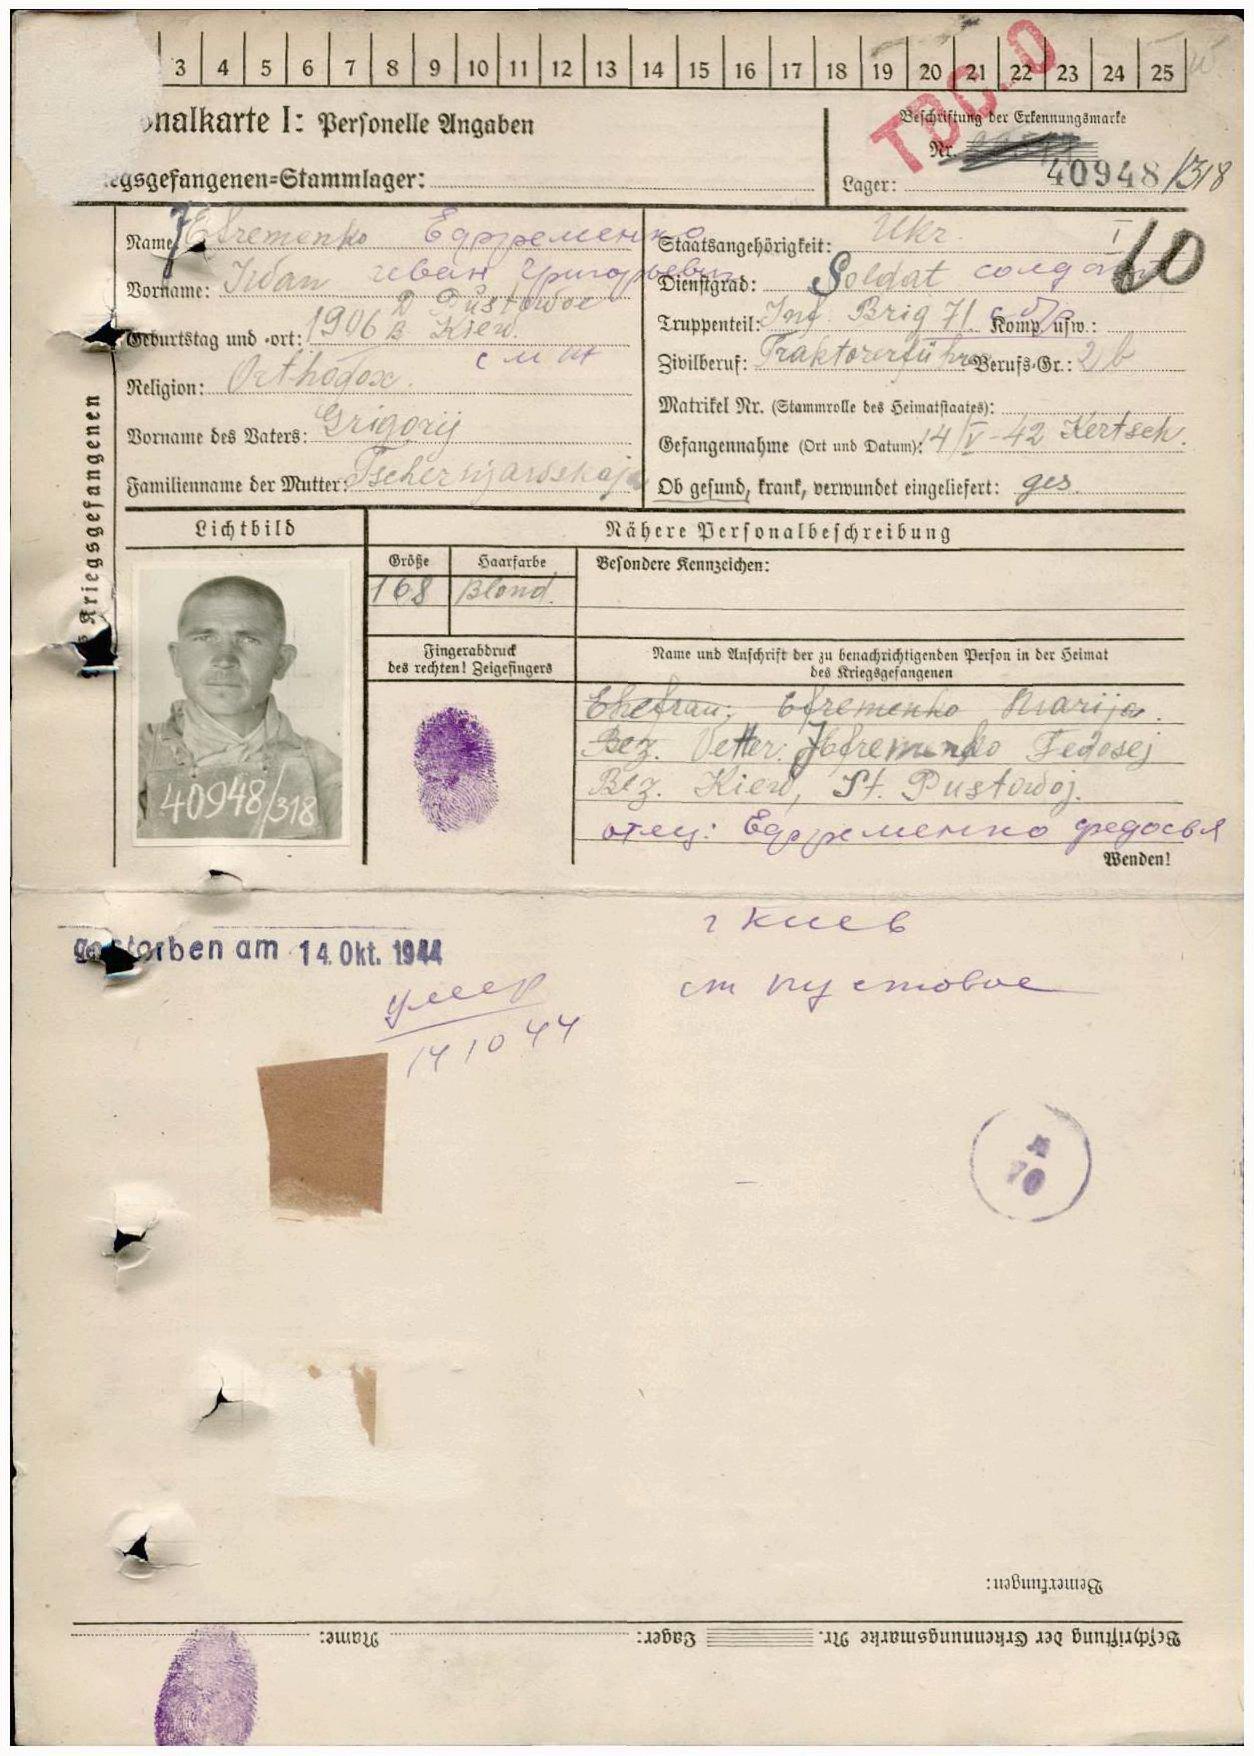 3 4 5 6 7 8 9 10 11 12 13 14 15 16 17 18 19 20 21 22 23 24 25
onalkarte I: Personelle Angaben
egsgefangenen=Stammlager:
Beschriftung der Erkennungsmarke
Nr.
40948/318
Lager:
Name: Efremenko Еффременко
Vorname: Iwan Иван Григорьевич
Geburtstag und -ort: 1906 D Pustowoe
B Kiew.
Religion: Orthodox.
Vorname des Vaters: Grigorij
Familienname der Mutter:
Staatsangehörigkeit: Ukr. I
10
Dienstgrad: Soldat солдат
Truppenteil: Inf. Brig 71 Komp. usw.:
Zivilberuf: Traktorenführer Berufs-Gr.: 2 b
Matrikel Nr. (Stammrolle des Heimatstaates):
Gefangennahme (Ort und Datum): 14/V-42 Kertsch.
Ob gesund, krank, verwundet eingeliefert: ges.
Kriegsgefangenen
Lichtbild
Nähere Personalbeschreibung
Größe
Haarfarbe
Besondere Kennzeichen:
168
Blond.
Fingerabdruck
des rechten! Zeigefingers
Name und Anschrift der zu benachrichtigenden Person in der Heimat
des Kriegsgefangenen
Ehefrau: Efremenko Marija.
Bez. Vetter: Efremenko Fedosej
Bez. Kiew, St. Pustowoj.
отец: Еффременко федосья
Wenden!
40948/318
г Киев
ст пустовое
gestorben am 14. Okt. 1944
умер
14 10 44
A
70
Bemerkungen:
Beschriftung der Erkennungsmarke Nr. Lager: Name: